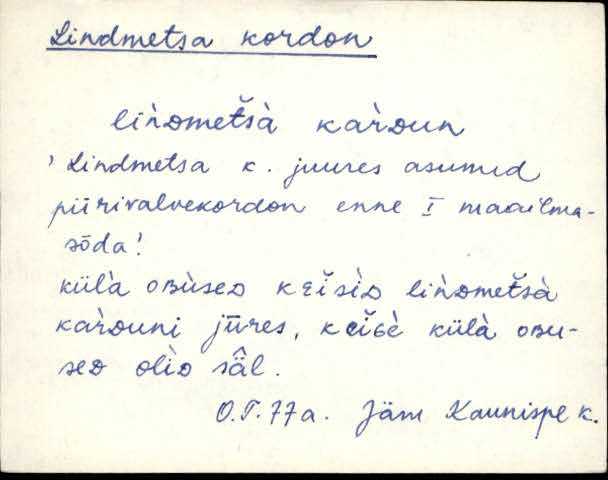 Lindmetsa kordon
lìǹᴅmeťšà kàrᴅun
' Lindmetsa k. juures asunud
piirivalvekordon enne I maailma-
sõda'
külà oʙùseᴅ kɛišìᴅ lìǹᴅmeťšà
kàrᴅuni jūres, kɛišè külà oʙu-
seᴅ olìᴅ sä̂l.
O.T. 77a. Jäm Kaunispe k.